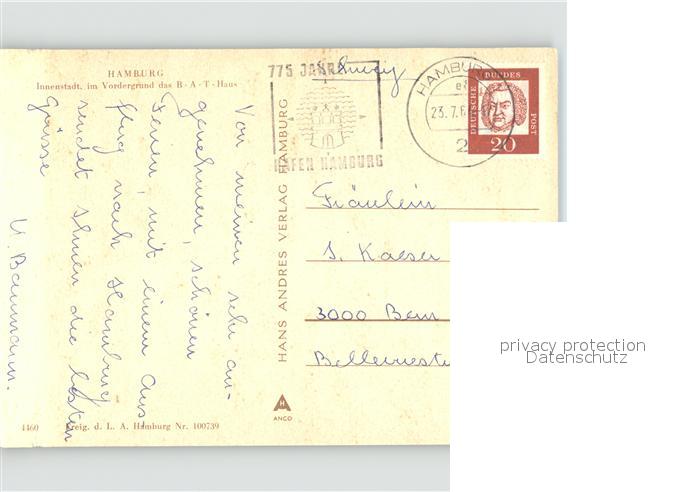 HAMBURG
Innenstadt, im Vordergrund das B-A-T-Haus
Von meinen sehr an-
genehmen, schönen
Ferien, mit einem Aus
flug nach Hamburg
sendet Ihnen die besten
Grüsse
U. Baumann.
4460
Freig. d. L. A. Hamburg Nr. 100739
HANS ANDRES VERLAG HAMBURG
ANCO
775 JAHRE
HAFEN HAMBURG
Schweiz
HAMBURG
23.7.6
2
DEUTSCHE BUNDES POST
20
Fräulein
S. Kaeser
3000 Bern
Bellevuestr
privacy protection
Datenschutz